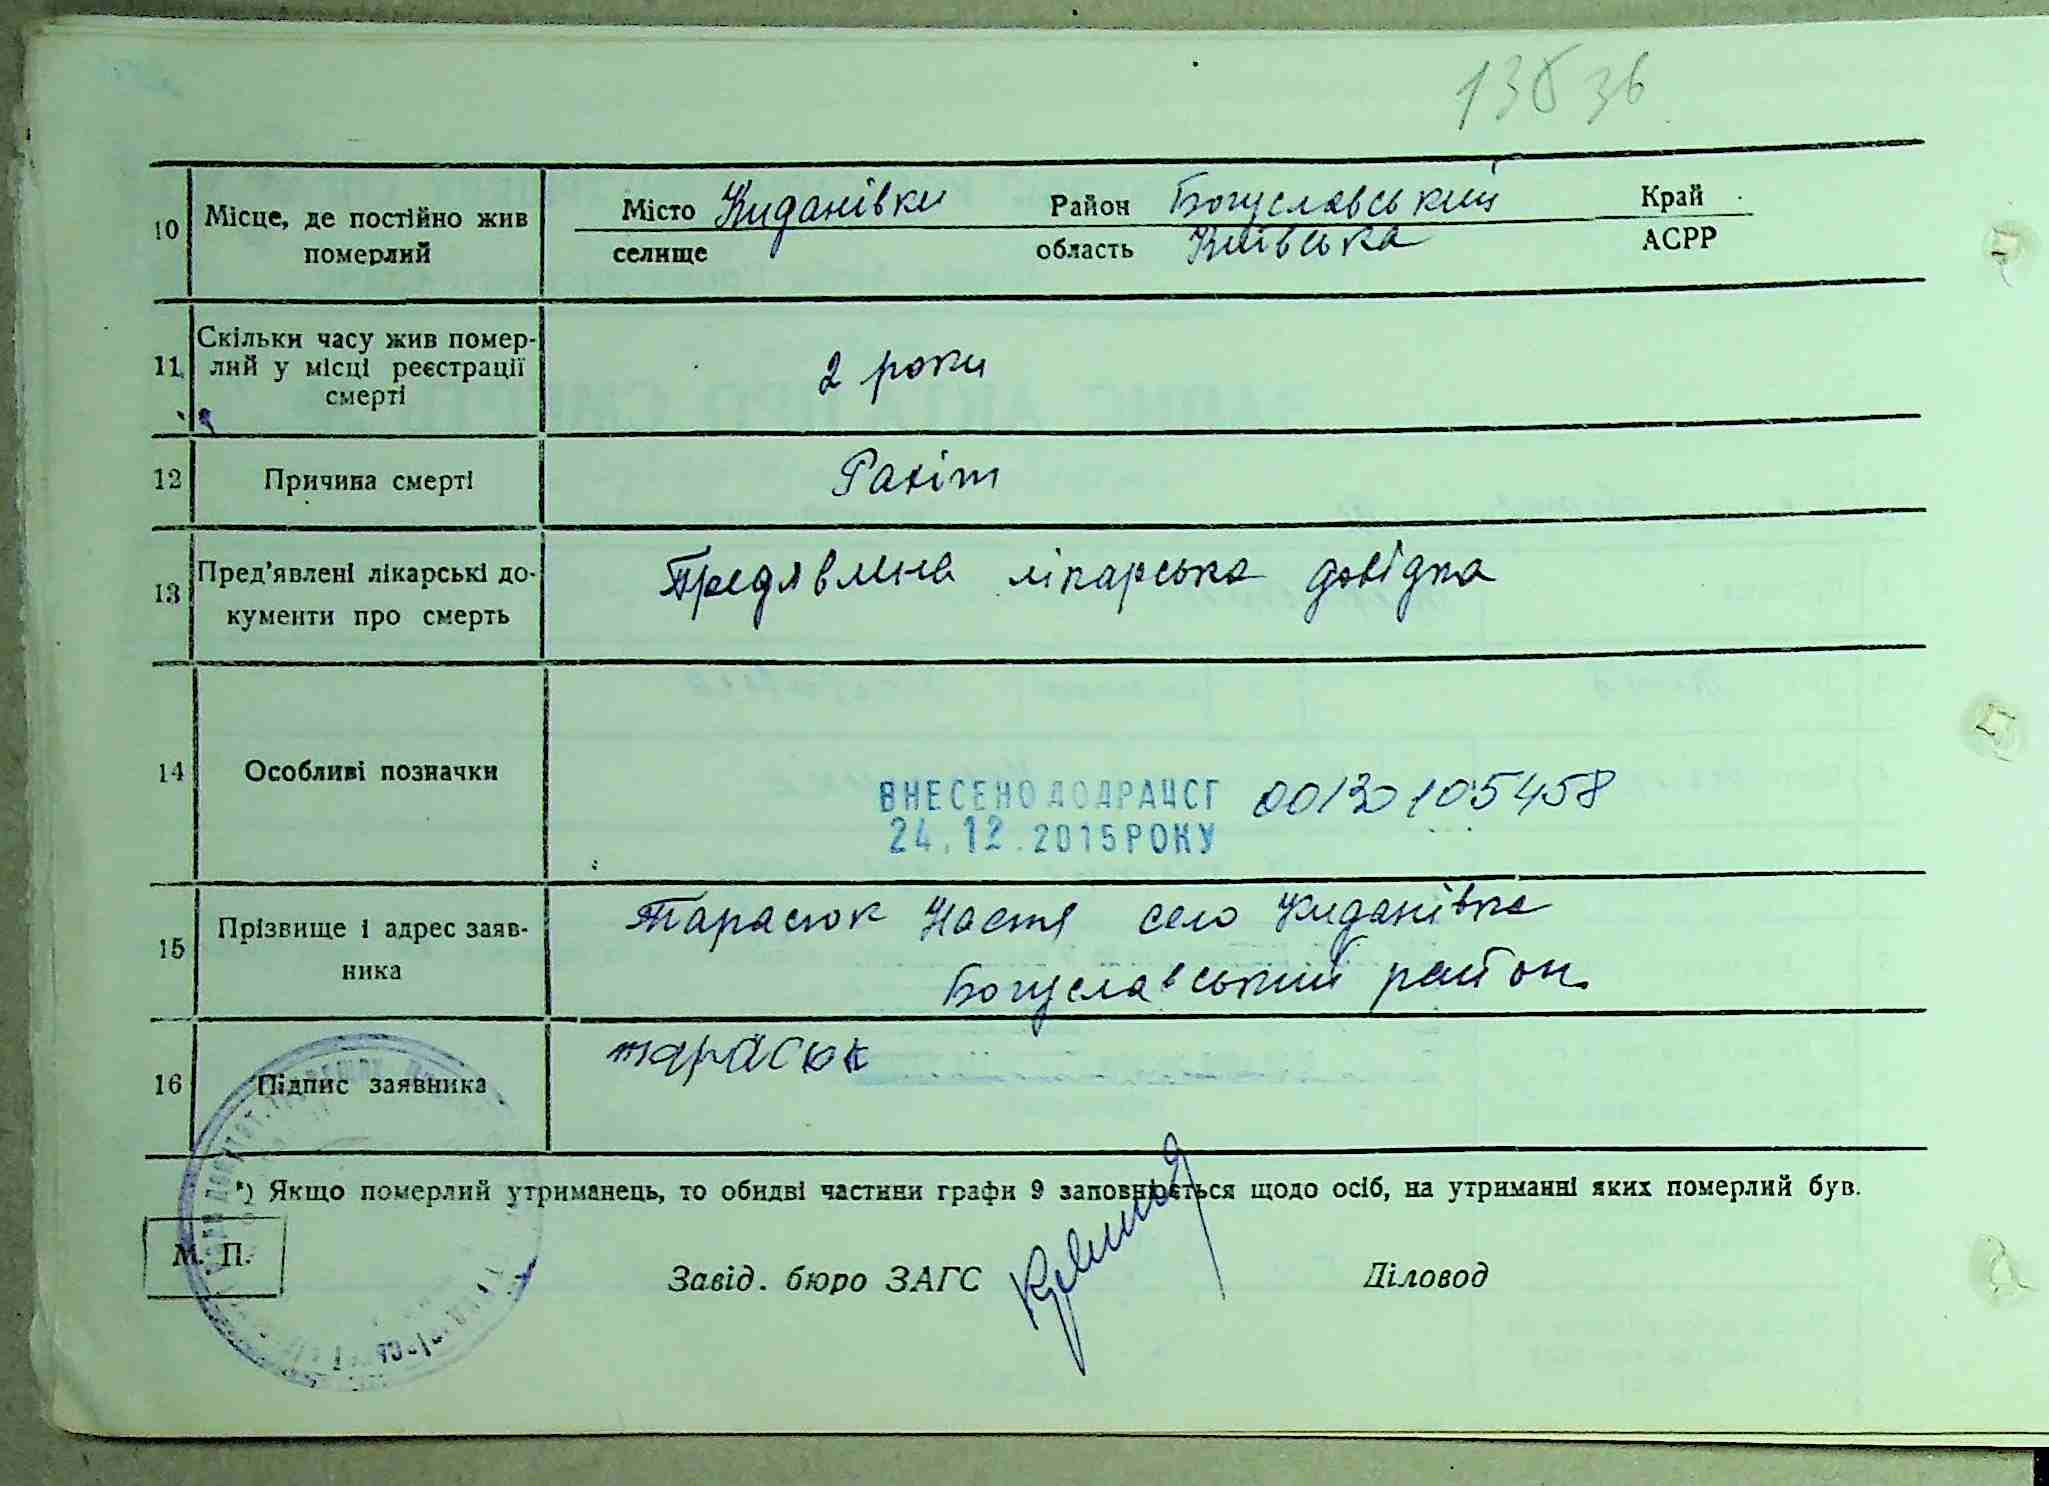 13б зв
10 Місце, де постійно жив померлий
Місто Киданівки Район Богуславський Край
селище область Київська АСРР
11 Скільки часу жив помер-
лий у місці реєстрації
смерті
2 роки
12 Причина смерті Рахіт
13 Пред'явлені лікарські до-
кументи про смерть
Предявлина лікарська довідка
14 Особливі позначки
ВНЕСЕНО ДО ДРАЦСГ 00130105458
24.12.2015 РОКУ
15 Прізвище і адрес заяв-
ника
Тарасюк Настя село Киданівка
Богуславський район.
16 Підпис заявника
тарасюк
*) Якщо померлий утриманець, то обидві частини графи 9 заповнюється щодо осіб, на утриманні яких померлий був.
М. П.
Завід. бюро ЗАГС Діловод